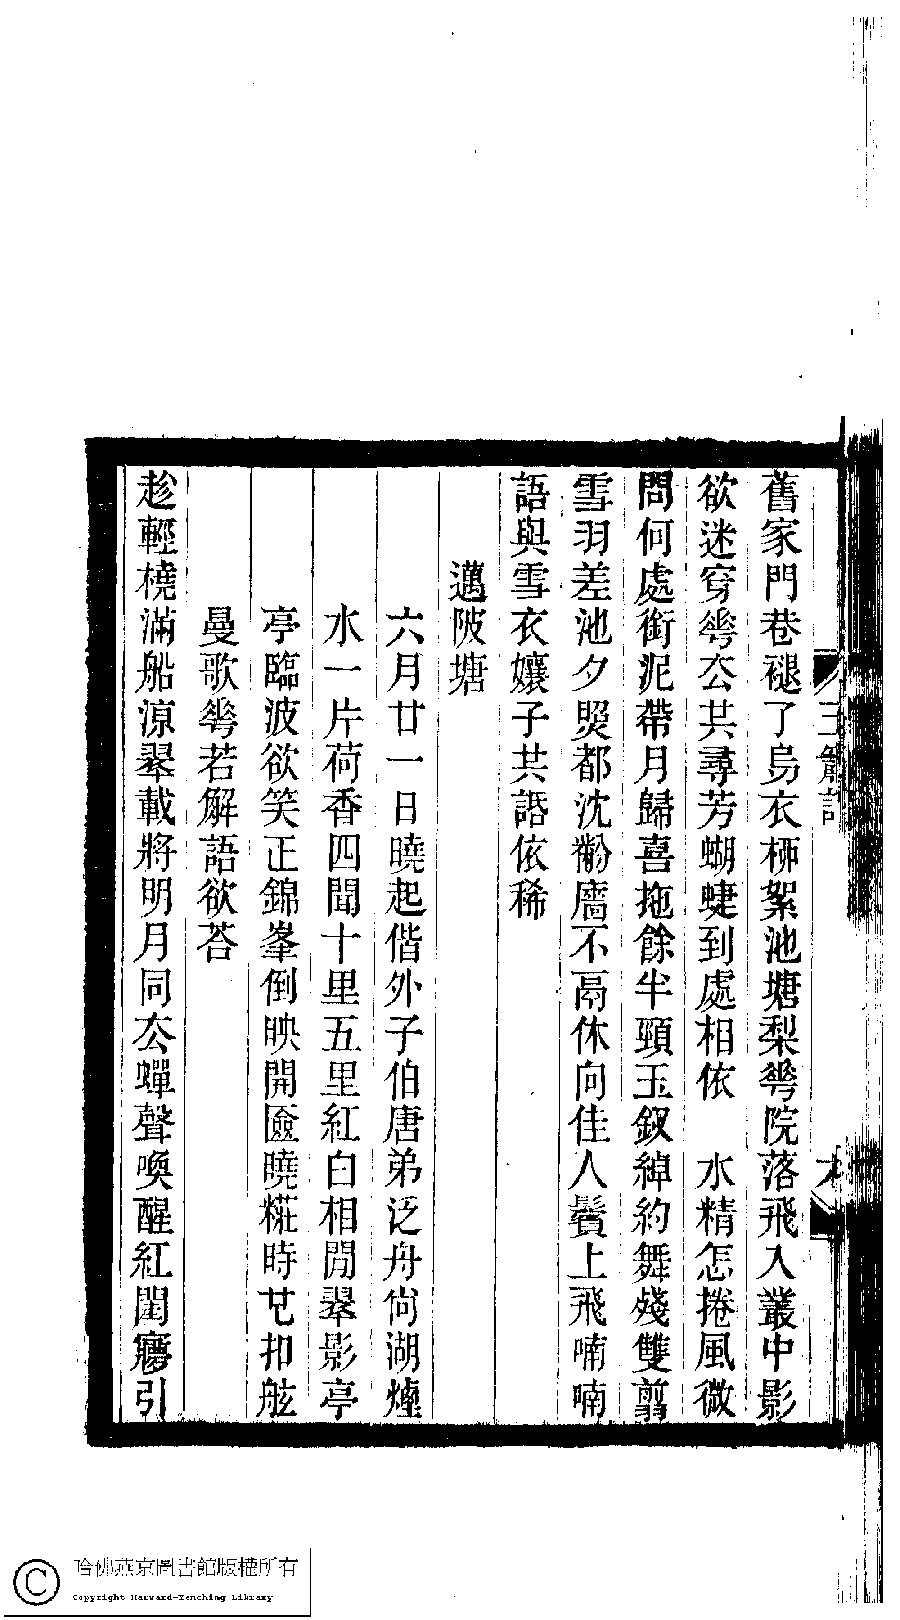 舊家門巷褪了烏衣栁絮池塘梨蕐院落飛入叢中影
欲迷穿蕐厺共尋芳蝴蜨到處相依　水精怎捲風微
問何處銜泥帶月歸喜拖餘半頸玉釵綽約舞殘雙翦
雪羽差池夕照都沈粉牆不鬲休向佳人鬢上飛喃喃
語與雪衣孃子共話依稀
邁陂塘
六月廿一日曉起偕外子伯唐弟泛舟尙湖煙
水一片荷香四聞十里五里紅白相閒翠影亭
亭臨波欲笑正錦峯倒映開匳曉糚時也扣舷
曼歌蕐若解語欲荅
趁輕橈滿船凉翠載將明月同厺蟬聲喚醒紅閨㝱引
哈佛燕京圖書館版權所有
Copyright Harvard-Yenching Library